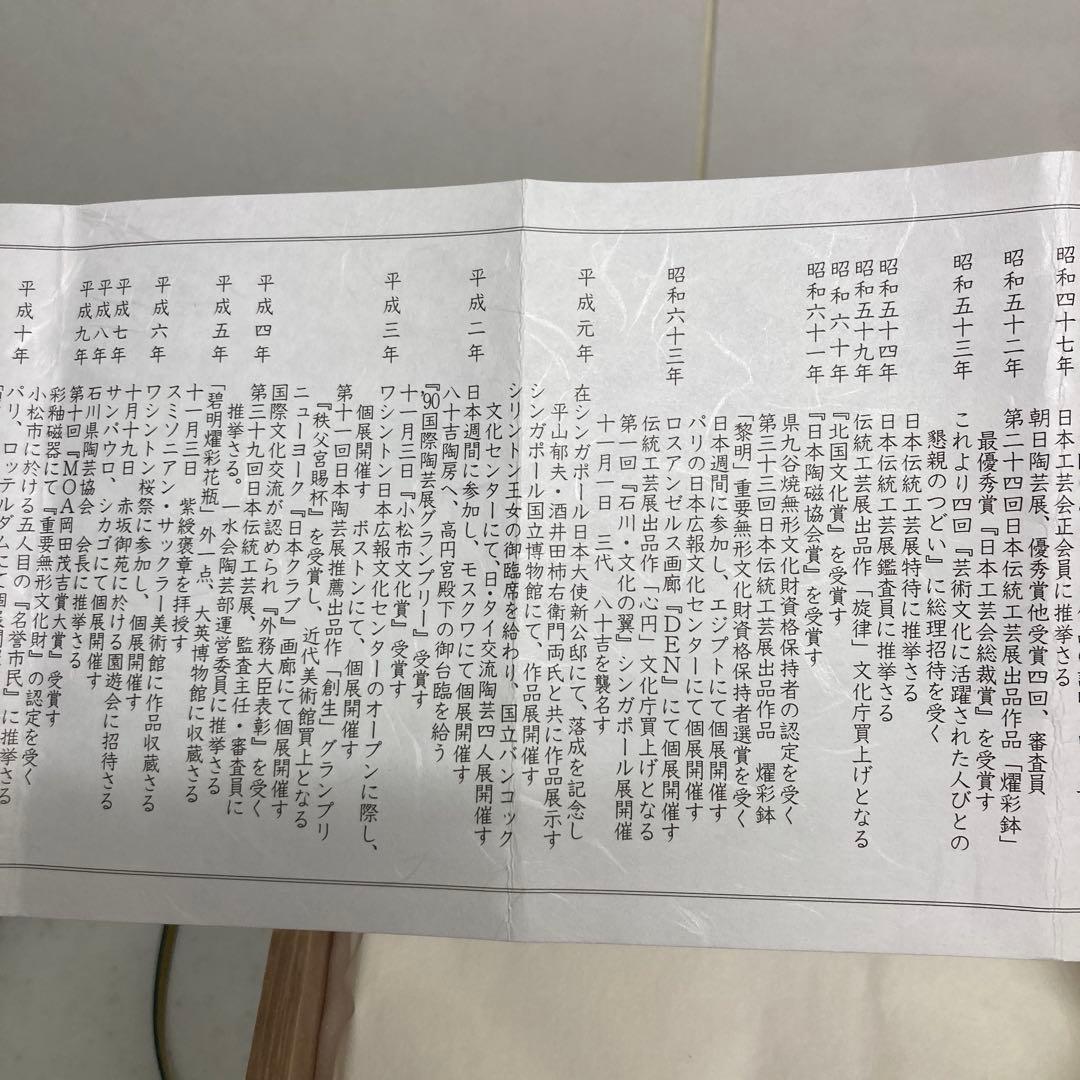 昭和四十七年　日本工芸会正会員に推挙さる
朝日陶芸展、優秀賞他受賞四回、審査員
昭和五十二年　第二十四回日本伝統工芸展出品作品「燿彩鉢」
最優秀賞『日本工芸会総裁賞』を受賞す
昭和五十三年　これより四回『芸術文化に活躍された人びとの
懇親のつどい』に総理招待を受く
日本伝統工芸展特待に推挙さる
昭和五十四年　日本伝統工芸展鑑査員に推挙さる
昭和五十九年　伝統工芸展出品作「旋律」文化庁買上げとなる
昭和六十年　『北国文化賞』を受賞す
昭和六十一年　『日本陶磁協会賞』を受賞す
県九谷焼無形文化財資格保持者の認定を受く
第三十三回日本伝統工芸展出品作品　燿彩鉢
「黎明」重要無形文化財資格保持者選賞を受く
日本週間に参加し、エジプトにて個展開催す
パリの日本広報文化センターにて個展開催す
昭和六十三年　ロスアンゼルス画廊『DEN』にて個展開催す
伝統工芸展出品作「心円」文化庁買上げとなる
第一回『石川・文化の翼』シンガポール展開催
十一月一日　三代　八十吉を襲名す
平成元年　在シンガポール日本大使新公邸にて、落成を記念し
平山郁夫・酒井田柿右衛門両氏と共に作品展示す
シンガポール国立博物館にて、作品展開催す
シリントン王女の御臨席を給わり、国立バンコック
文化センターにて、日・タイ交流陶芸四人展開催す
平成二年　日本週間に参加し、モスクワにて個展開催す
八十吉陶房へ、高円宮殿下の御台臨を給う
『'90国際陶芸展グランプリー』受賞す
十一月三日『小松市文化賞』受賞す
平成三年　ワシントン日本広報文化センターのオープンに際し、
個展開催す　ボストンにて、個展開催す
第十一回日本陶芸展推薦出品作「創生」グランプリ
『秩父宮賜杯』を受賞し、近代美術館買上となる
ニューヨーク『日本クラブ』画廊にて個展開催す
国際文化交流が認められ『外務大臣表彰』を受く
平成四年　第三十九回日本伝統工芸展、監査主任・審査員に
推挙さる。一水会陶芸部運営委員に推挙さる
平成五年　「碧明燿彩花瓶」外一点、大英博物館に収蔵さる
十一月三日　紫綬褒章を拝授す
スミソニアン・サックラー美術館に作品収蔵さる
平成六年　ワシントン桜祭に参加し、個展開催す
十月十九日　赤坂御苑に於ける園遊会に招待さる
平成七年　サンパウロ、シカゴにて個展開催す
平成八年　石川県陶芸協会　会長に推挙さる
平成九年　第十回『MOA岡田茂吉賞大賞』受賞す
彩釉磁器にて『重要無形文化財』の認定を受く
小松市に於ける五人目の『名誉市民』に推挙さる
平成十年　パリ、ロッテルダムにて個展開